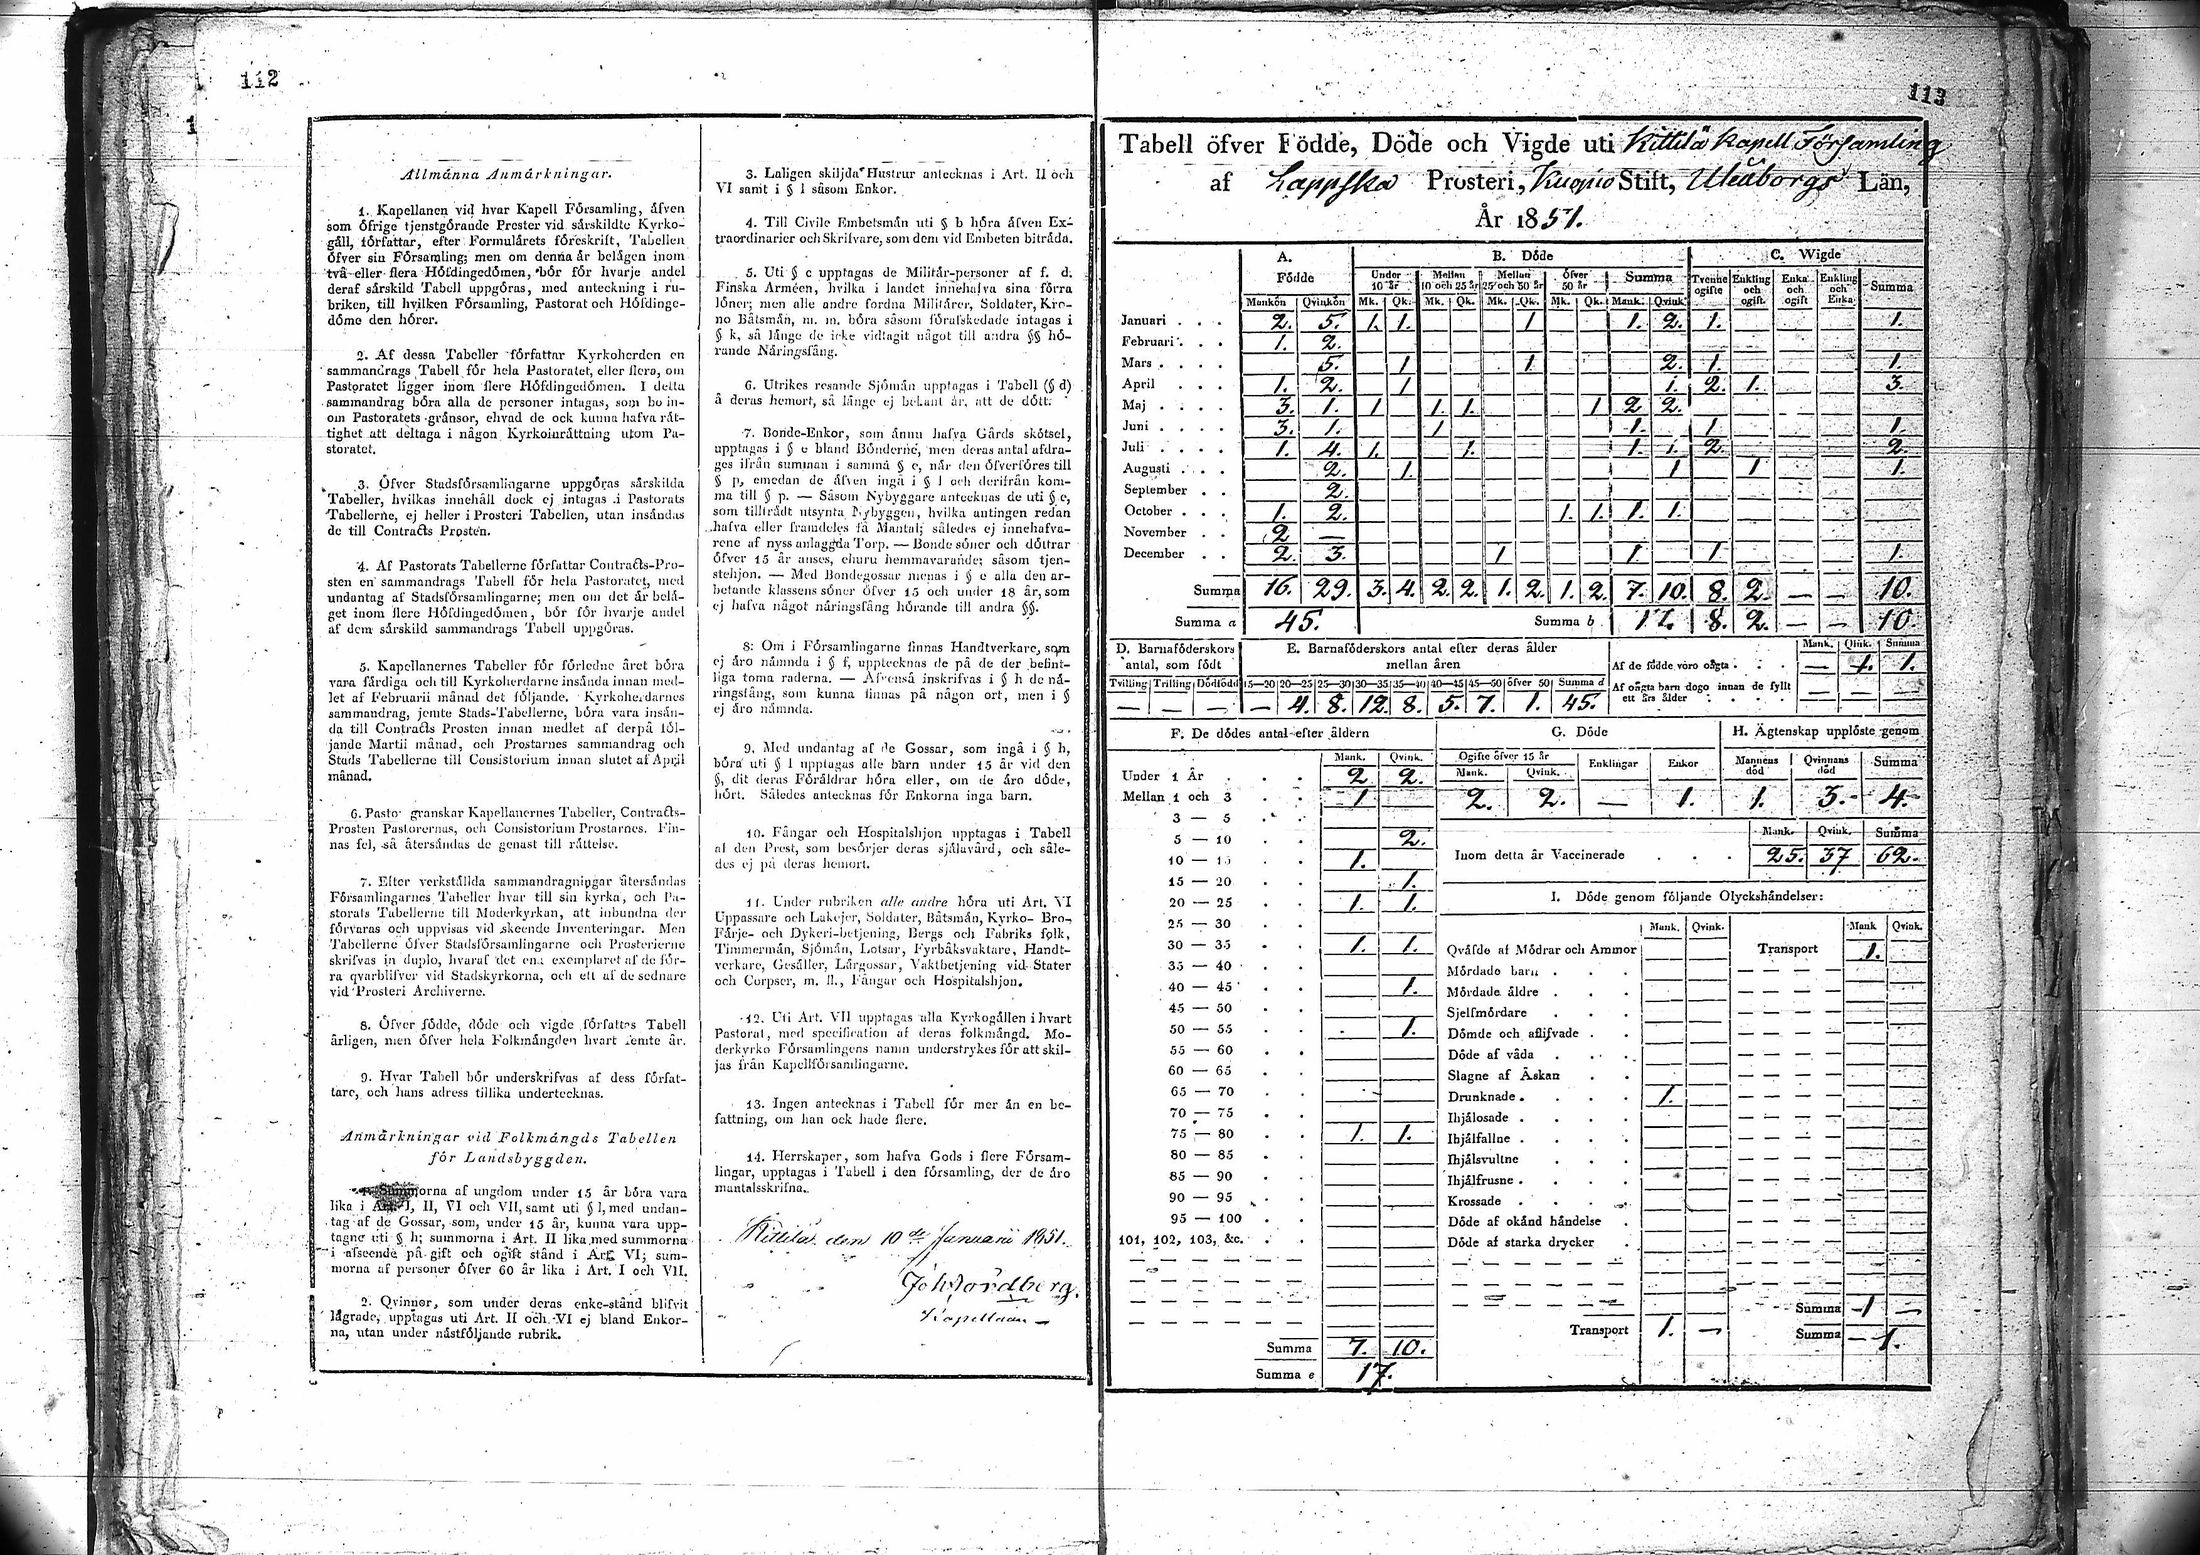 112
Allmänna Anmärkningar.
1. Kapellanen vid hvar Kapell Församling, äfven
som öfrige tjenstgörande Prester vid särskildte Kyrko-
gäll, författar, efter Formulärets föreskrift, Tabellen
öfver sin Församling; men om denna är belägen inom
två eller flera Höfdingedömen, bör för hvarje andel
deraf särskild Tabell uppgöras, med anteckning i ru-
briken, till hvilken Församling, Pastorat och Höfdinge-
döme den hörer.
2. Af dessa Tabeller författar Kyrkoherden en
sammandrags Tabell för hela Pastoratet, eller flera, om
Pastoratet ligger inom flere Höfdingedömen. I detta
sammandrag böra alla de personer intagas, som bo in-
om Pastoratets gränsor, ehvad de ock kunna hafva rät-
tighet att deltaga i någon Kyrkoinrättning utom Pa-
storatet.
3. Öfver Stadsförsamlingarne uppgöras särskilda
Tabeller, hvilkas innehåll dock ej intagas i Pastorats
Tabellerne, ej heller i Prosteri Tabellen, utan insändas
de till Contracts Prosten.
4. Af Pastorats Tabellerne författar Contracts-Pro-
sten en sammandrags Tabell för hela Pastoratet, med
undantag af Stadsförsamlingarne; men om det är belä-
get inom flere Höfdingedömen, bör för hvarje andel
af dem särskild sammandrags Tabell uppgöras.
5. Kapellanernes Tabeller för förledne året böra
vara färdiga och till Kyrkoherdarne insända innan med-
let af Februarii månad det följande. Kyrkoherdarnes
sammandrag, jemte Stads-Tabellerne, böra vara insän-
da till Contracts Prosten innan medlet af derpå föl-
jande Martii månad, och Prostarnes sammandrag och
Stads Tabellerne till Consistorium innan slutet af April
månad.
6. Pastor granskar Kapellanernes Tabeller, Contracts-
Prosten Pastorernas, och Consistorium Prostarnes. Fin-
nas fel, så återsändas de genast till rättelse.
7. Efter verkställda sammandragningar återsändas
Församlingarnes Tabeller hvar till sin kyrka, och Pa-
storats Tabellerne till Moderkyrkan, att inbundna der
förvaras och uppvisas vid skeende Inventeringar. Men
Tabellerne öfver Stadsförsamlingarne och Prosterierne
skrifvas in duplo, hvaraf det ena exemplaret af de för-
ra qvarblifver vid Stadskyrkorna, och ett af de sednare
vid Prosteri Archiverne.
8. Öfver födde, döde och vigde författas Tabell
årligen, men öfver hela Folkmängden hvart femte år.
9. Hvar Tabell bör underskrifvas af dess förfat-
tare, och hans adress tillika undertecknas.
Anmärkningar vid Folkmängds Tabellen
för Landsbyggden.
1. Summorna af ungdom under 15 år böra vara
lika i Art. I, II, VI och VII, samt uti § l, med undan-
tag af de Gossar, som, under 15 år, kunna vara upp-
tagne uti § h; summorna i Art. II lika med summorna
i afseende på gift och ogift stånd i Art. VI; sum-
morna af personer öfver 60 år lika i Art. I och VII.
2. Qvinnor, som under deras enke-stånd blifvit
lägrade, upptagas uti Art. II och VI ej bland Enkor-
na, utan under nästföljande rubrik.
3. Laligen skiljda Hustrur antecknas i Art. II och
VI samt i § l såsom Enkor.
4. Till Civile Embetsmän uti § b höra äfven Ex-
traordinarier och Skrifvare, som dem vid Embeten biträda.
5. Uti § c upptagas de Militär-personer af f. d.
Finska Arméen, hvilka i landet innehafva sina förra
löner; men alle andre fordna Militärer, Soldater, Kro-
no Båtsmän, m. m. böra såsom förafskedade intagas i
§ k, så länge de icke vidtagit något till andra §§ hö-
rande Näringsfång.
6. Utrikes resande Sjömän upptagas i Tabell (§ d)
å deras hemort, så länge ej bekant är, att de dött.
7. Bonde-Enkor, som ännu hafva Gårds skötsel,
upptagas i § e bland Bönderne, men deras antal afdra-
ges ifrån summan i samma § e, när den öfverföres till
§ p, emedan de äfven ingå i § l och derifrån kom-
ma till § p. — Såsom Nybyggare antecknas de uti § e,
som tillträdt utsynta Nybyggen, hvilka antingen redan
hafva eller framdeles få Mantal; således ej innehafva-
rene af nyss anlaggda Torp. — Bonde söner och döttrar
öfver 15 år anses, ehuru hemmavarande; såsom tjen-
stehjon. — Med Bondegossar menas i § e alla den ar-
betande klassens söner öfver 15 och under 18 år, som
ej hafva något näringsfång hörande till andra §§.
8. Om i Församlingarne finnas Handtverkare, som
ej äro nämnda i § f, upptecknas de på de der befint-
liga toma raderna. — Äfvenså inskrifvas i § h de nä-
ringsfång, som kunna finnas på någon ort, men i §
ej äro nämnda.
9. Med undantag af de Gossar, som ingå i § h,
böra uti § l upptagas alle barn under 15 år vid den
§, dit deras Föräldrar höra eller, om de äro döde,
hört. Således antecknas för Enkorna inga barn.
10. Fångar och Hospitalshjon upptagas i Tabell
af den Prest, som besörjer deras själavård, och såle-
des ej på deras hemort.
11. Under rubriken alle andre höra uti Art. VI
Uppassare och Lakejer, Soldater, Båtsmän, Kyrko- Bro-,
Färje- och Dykeri-betjening, Bergs och Fabriks folk,
Timmermän, Sjömän, Lotsar, Fyrbåksvaktare, Handt-
verkare, Gesäller, Lärgossar, Vaktbetjening vid Stater
och Corpser, m. fl., Fångar och Hospitalshjon.
12. Uti Art. VII upptagas alla Kyrkogällen i hvart
Pastorat, med specification af deras folkmängd. Mo-
derkyrko Församlingens namn understrykes för att skil-
jas från Kapellförsamlingarne.
13. Ingen antecknas i Tabell för mer än en be-
fattning, om han ock hade flere.
14. Herrskaper, som hafva Gods i flere Försam-
lingar, upptagas i Tabell i den församling, der de äro
mantalsskrifna.
Kittilä den 10de Januarii 1851.
Joh Nordberg.
Kapellan
113
Tabell öfver Födde, Döde och Vigde uti Kittilä Kapell Församling
af Lappska Prosteri, Kuopio Stift, Uleåborgs Län,
År 1851.
A. Födde B. Döde C. Wigde
Under 10 år Mellan 10 och 25 år Mellan 25 och 50 år Öfver 50 år Summa Tvenne ogifte Enkling och ogift Enka och ogift Enkling och Enka Summa
Mankön Qvinkön Mk. Qk. Mk. Qk. Mk. Qk. Mk. Qk. Mank. Qvink.
Januari . . . 2. 5. 1. 1. 1 1. 2. 1. 1.
Februari . . . 1. 2.
Mars . . . . 5. 1 1. 2. 1. 1.
April . . . 1. 2. 1 1. 2. 1. 3.
Maj . . . . 3. 1. 1 1. 1. 1 2 2.
Juni . . . . 3. 1. 1 1. 1 1.
Juli . . . . 1. 4. 1. 1. 1. 1. 2. 2.
Augusti . . . 2. 1. 1 1 1.
September . . 2.
October . . . 1. 2. 1. 1. 1. 1.
November . . 2 —
December . . 2. 3. 1 1. 1 1.
Summa 16. 29. 3. 4. 2. 2. 1. 2. 1. 2. 7. 10. 8. 2. — — 10.
Summa a 45. Summa b 17. 8. 2. — — 10.
D. Barnaföderskors antal, som födt
Tvilling Trilling Dödfödd
— — —
E. Barnaföderskors antal efter deras ålder mellan åren
15—20 20—25 25—30 30—35 35—40 40—45 45—50 öfver 50 Summa d
— 4. 8. 12. 8. 5. 7. 1. 45.
Mank. Qvink. Summa
Af de födde voro oägta . . . — 1. 1.
Af oägta barn dogo innan de fyllt
ett års ålder . . . . — — —
F. De dödes antal efter åldern
Mank. Qvink.
Under 1 År . . . 2 2.
Mellan 1 och 3 . . 1
3 — 5 . .
5 — 10 . . 2.
10 — 15 . . 1.
15 — 20 . . 1.
20 — 25 . . 1. 1.
25 — 30 . .
30 — 35 . . 1. 1.
35 — 40 . .
40 — 45 . . 1.
45 — 50 . .
50 — 55 . . 1.
55 — 60 . .
60 — 65 . .
65 — 70 . .
70 — 75 . .
75 — 80 . . 1. 1.
80 — 85 . .
85 — 90 . .
90 — 95 . .
95 — 100 . .
101, 102, 103, &c. . .
Summa 7. 10.
Summa e 17.
G. Döde
Ogifte öfver 15 år Enklingar Enkor
Mank. Qvink.
2. 2. — 1.
H. Ägtenskap upplöste genom
Mannens död Qvinnans död Summa
1. 3. 4.
Mank. Qvink. Summa
Inom detta år Vaccinerade . . . 25. 37 62.
I. Döde genom följande Olyckshändelser:
Mank. Qvink. Mank Qvink.
Qväfde af Mödrar och Ammor Transport 1.
Mördade barn . . .
Mördade äldre . . .
Sjelfmördare . .
Dömde och aflifvade . .
Döde af våda . . .
Slagne af Åskan . .
Drunknade . . . . 1.
Ihjälosade . . . .
Ihjälfallne . . . .
Ihjälsvultne . .
Ihjälfrusne . . . .
Krossade . . . .
Döde af okänd händelse .
Döde af starka drycker .
Summa 1 —
Transport 1. — Summa 1.